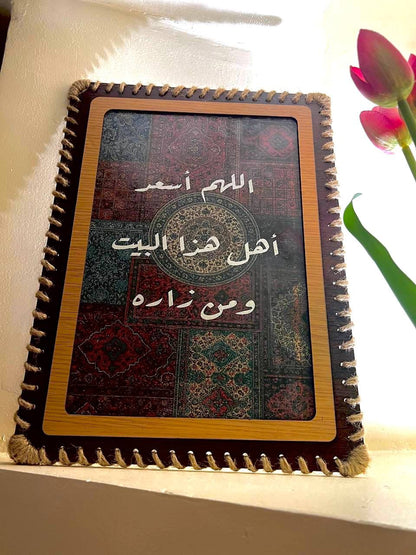 اللهم أسعد
أهل هذا البيت
ومن زاره